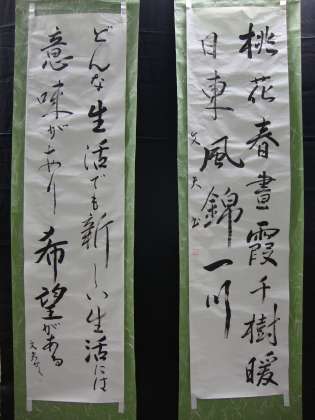 桃花春晝霞千樹暖
日東風錦一川
文夫書
どんな生活でも新しい生活には
意味があり希望がある
文夫かく